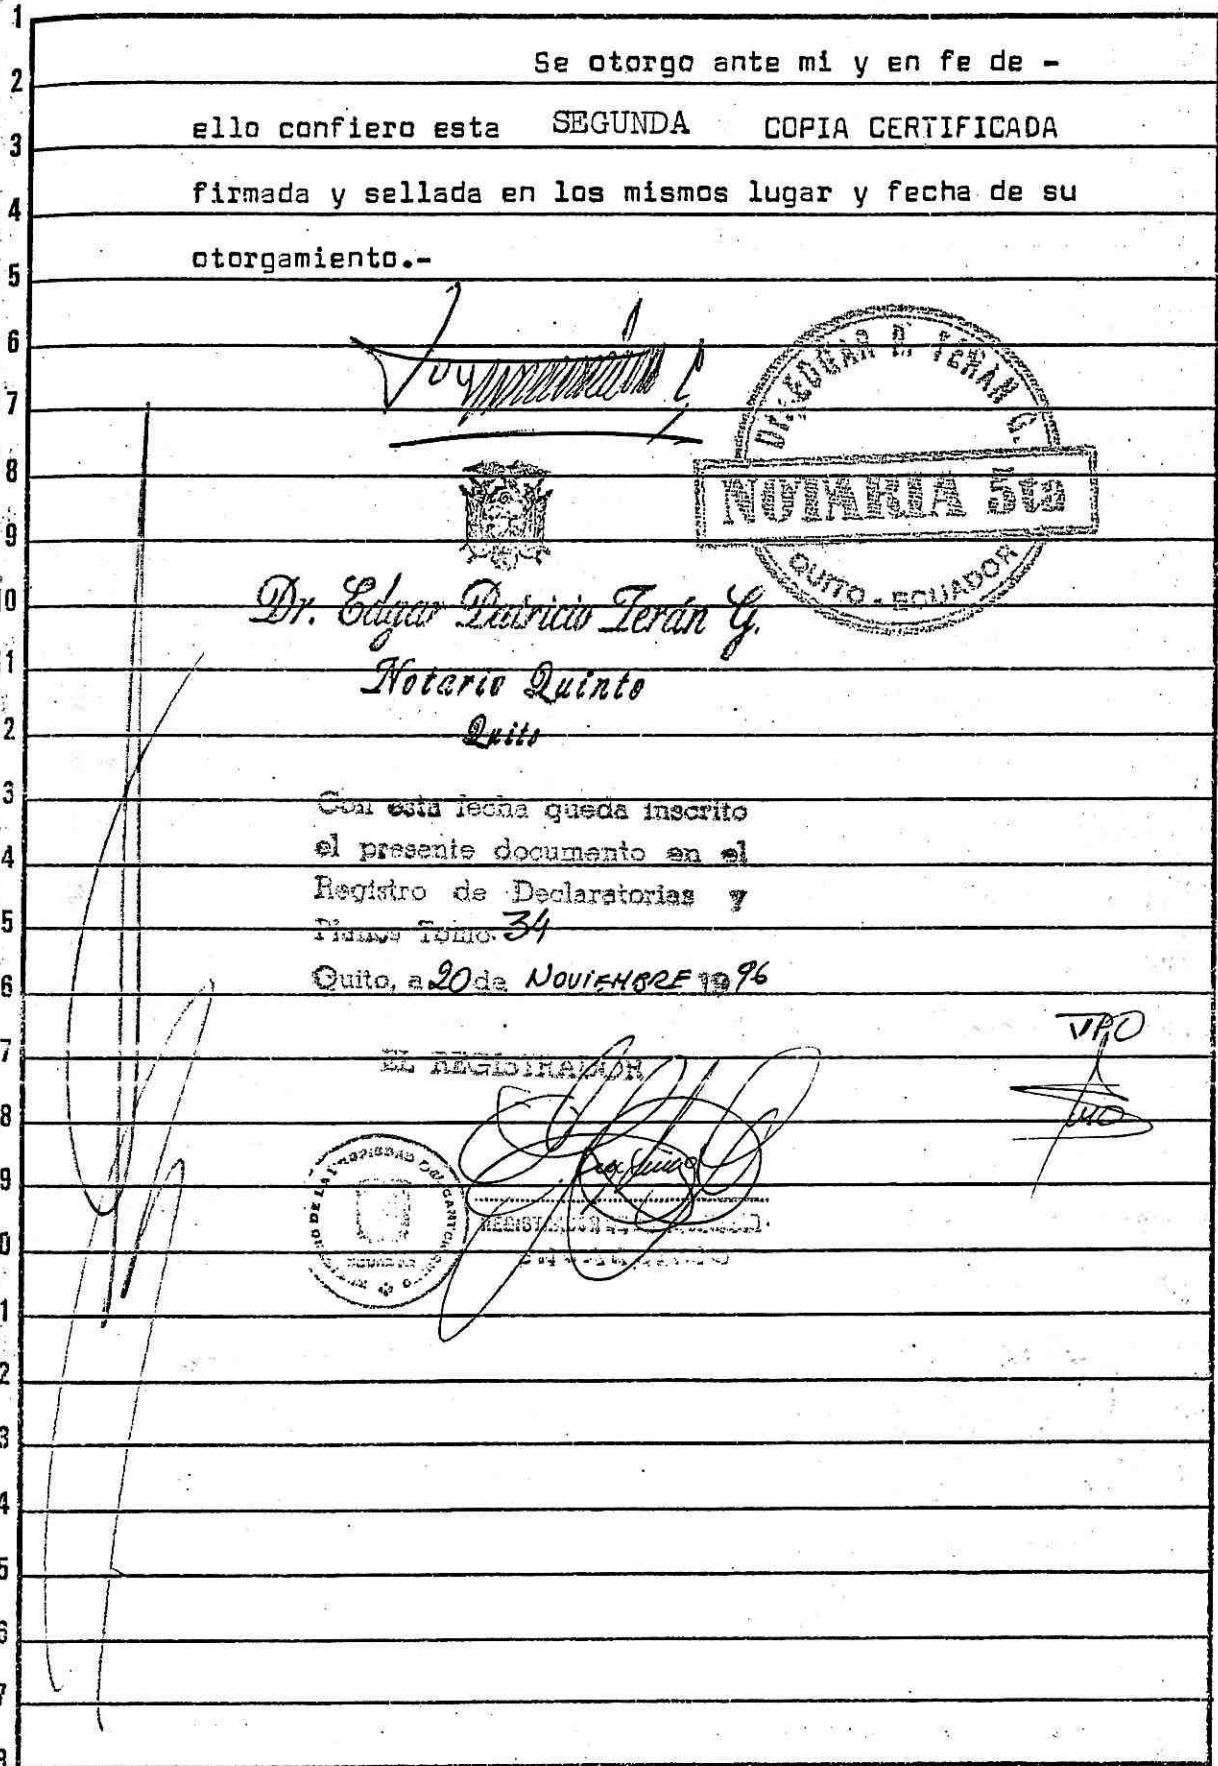 1
2
3
4
5
6
7
8
9
0
1
2
3
4
5
6
7
8
9
0
1
2
3
4
5
6
7
8
Se otorgo ante mi y en fe de -
ello confiero esta SEGUNDA COPIA CERTIFICADA
firmada y sellada en los mismos lugar y fecha de su
otorgamiento.-
DR. EDGAR P. TERAN G.
NOTARIA 5ta
QUITO - ECUADOR
Dr. Edgar Patricio Terán G.
Notario Quinto
Quito
Con esta fecha queda inscrito
el presente documento en el
Registro de Declaratorias y
Planos Tomo 34
Quito, a 20 de NOVIEMBRE 1996
EL REGISTRADOR
REGISTRO DE LA PROPIEDAD DEL CANTON QUITO
ECUADOR
REGISTRADOR